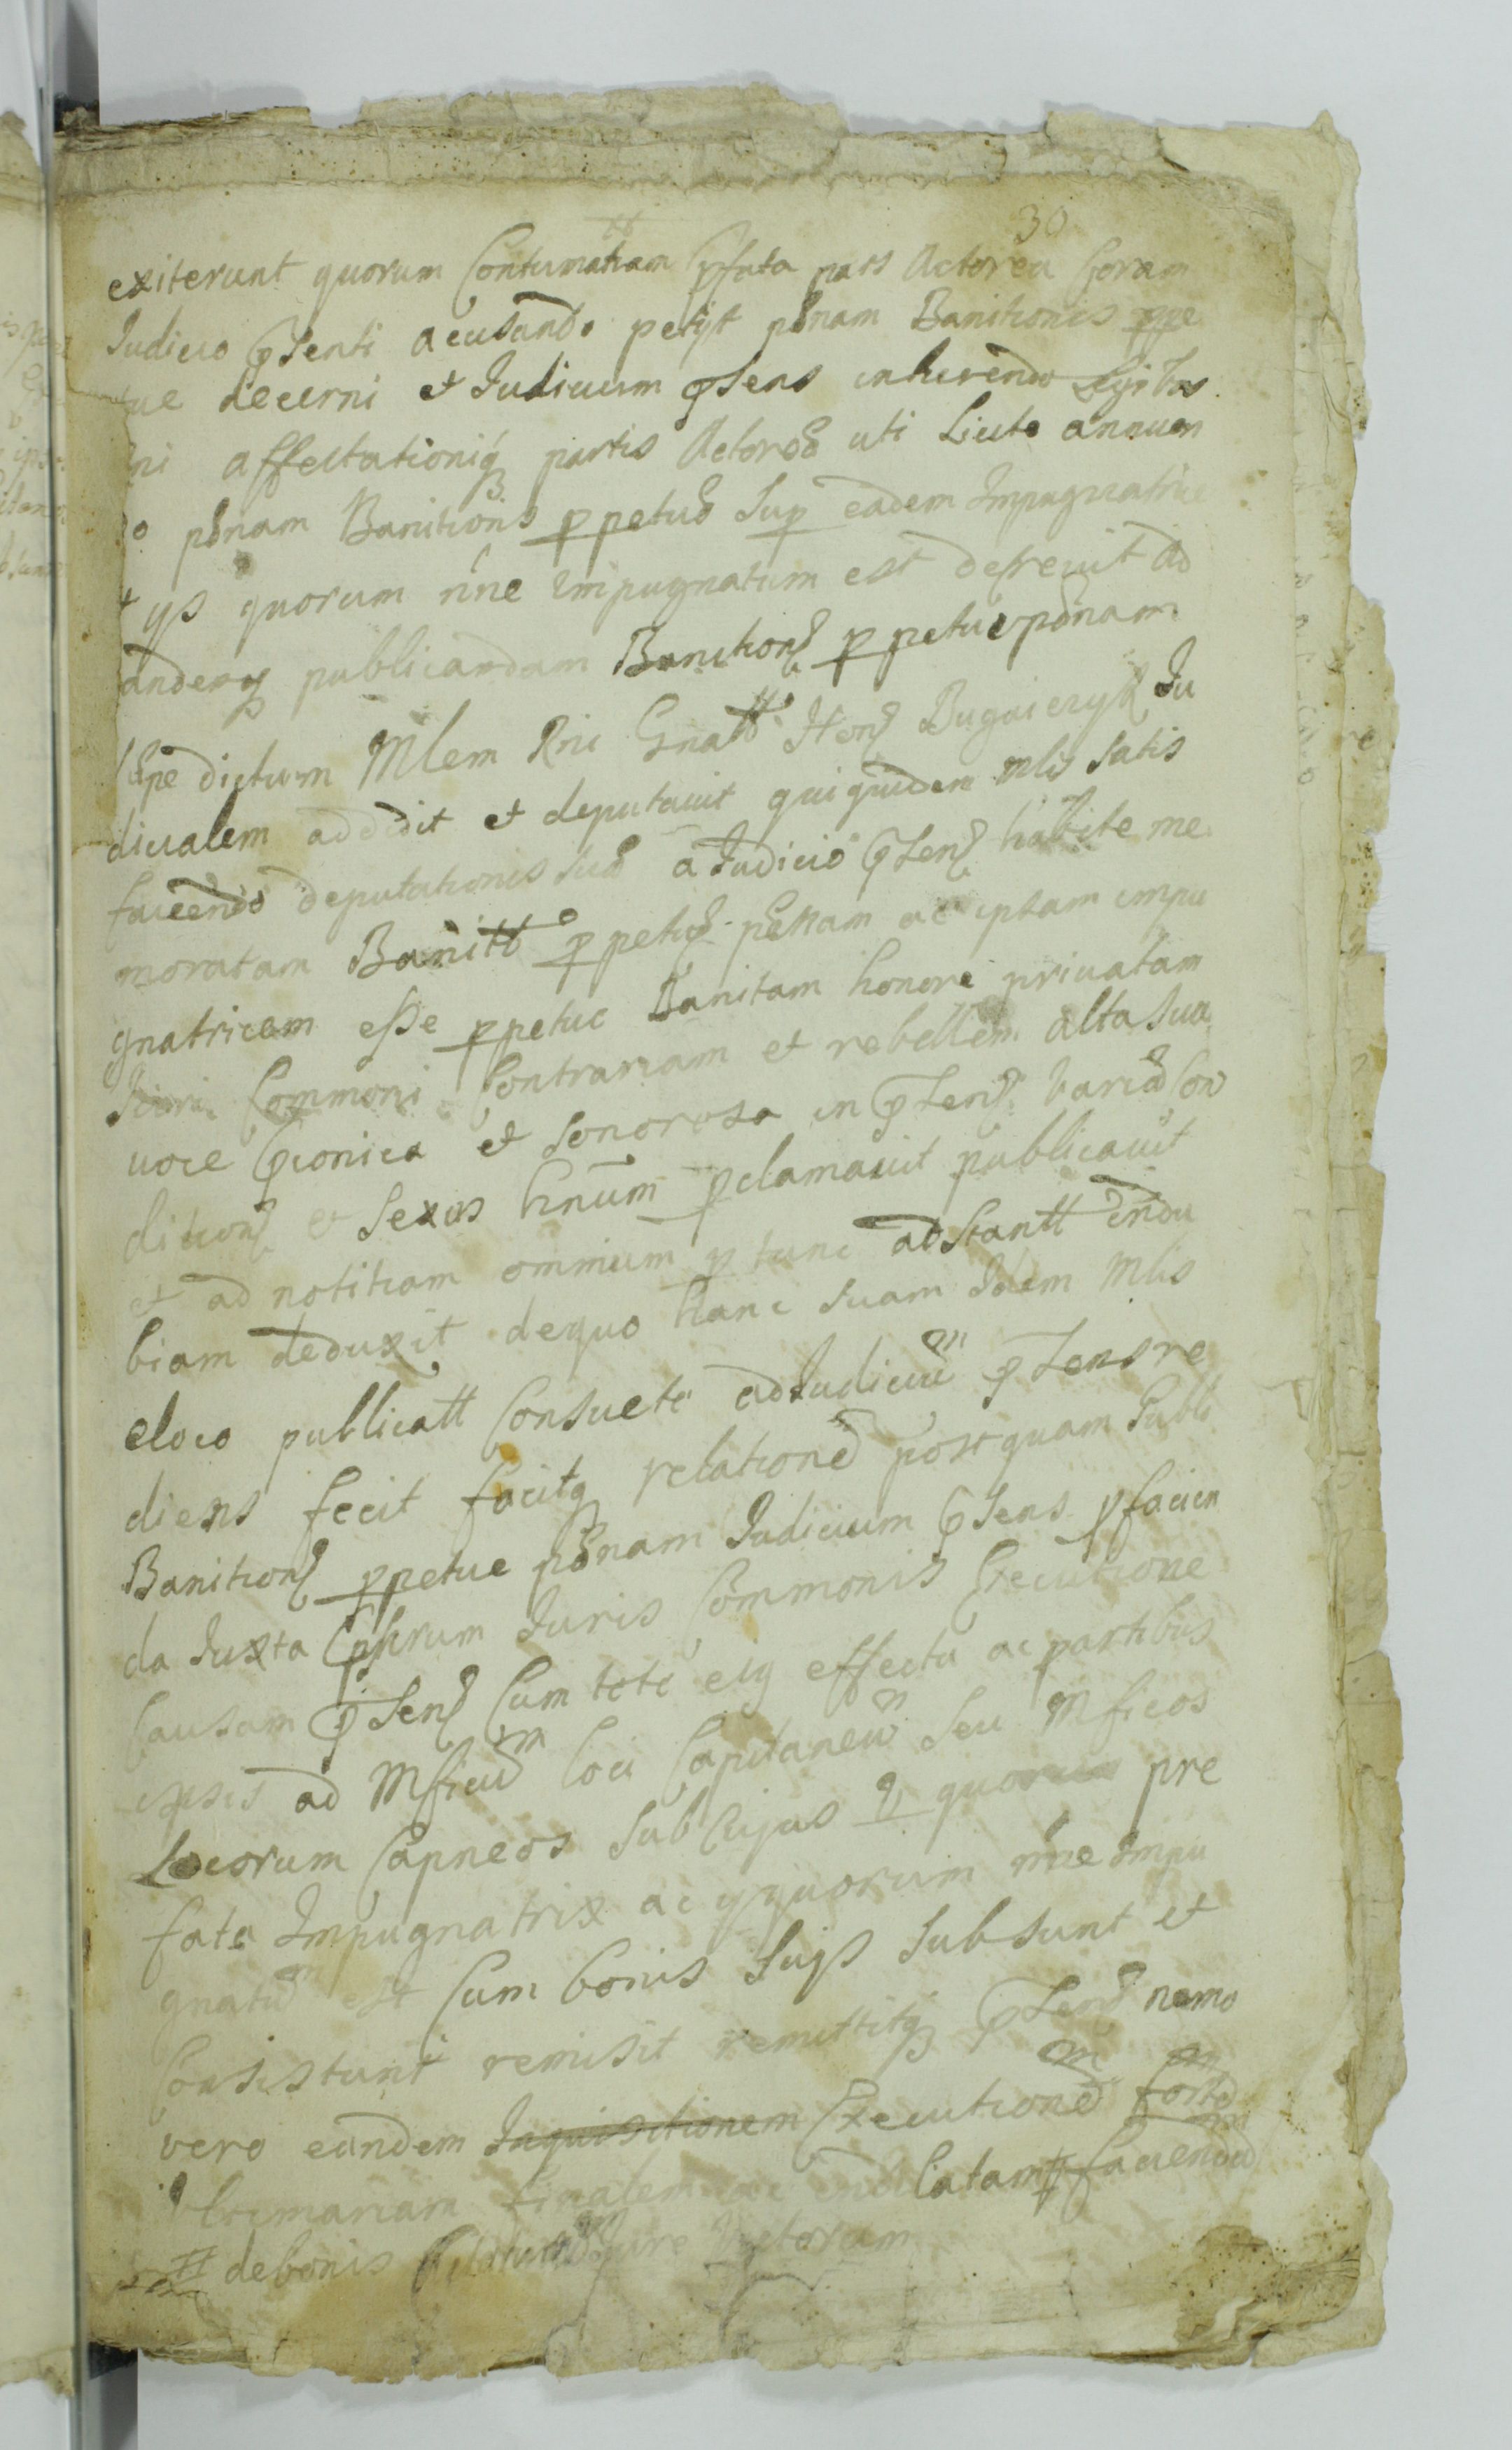 30
exiterunt quorum Contumatiam pfata pars Actorea Coram
Judicio pSenti acusando petyt pnam Banitionis ppe
tue decerni et Judicium pSens inherendo Legibus
ni affectationiq partis Actoreæ uti Licite annuen
do pnam Banitionis ppetuæ Sup eadem Impugnatric
et ys quorum nne impugnatum est decrevit ad
andenq publicandam Banition ppetue pnam
Sepe dictum Mlem Rni Gnatt Hen Bugaieryk Ju
dicialem addidit et deputavit quiquidem mlis Satis
faciendo deputationis suæ a Judicio pSen habite me
moratam Banitt ppetuæ pnam ac ipsam impu
gnatricem esse ppetue Banitam honore privatam
Juri Commoni Contrariam et rebellem alta sua
voce pconica et Sonorosa in pSen varia Con
dition et Sexus hnum pclamavit publicavit
et ad notitiam omnium p tunc adstantt indu
biam deduxit dequo hanc suam Idem Mlis
eloco publicatt Consueti ad Judiciu m pSens re
diens fecit facitq relatione postquam Publi
Banition ppetue pnam Judicium pSens p facien
da Juxta pscrum Juris Commonis Executione
Causam pSen Cum toto eiq effectu ac partibus
ipsis ad Mficu m loci Capitaneu m Seu Mficos
Locorum Capneos Sub cujus vl quorum pre
fata Impugnatrix ac yquorum nne Impu
gnatu m est Cum bonis Suys Subsunt et
Consistunt remisit remittitq pSen nemo
vero eandem Inquisitionem Executione m forte m
finalem latam faciendu m
debonis jure Victoram